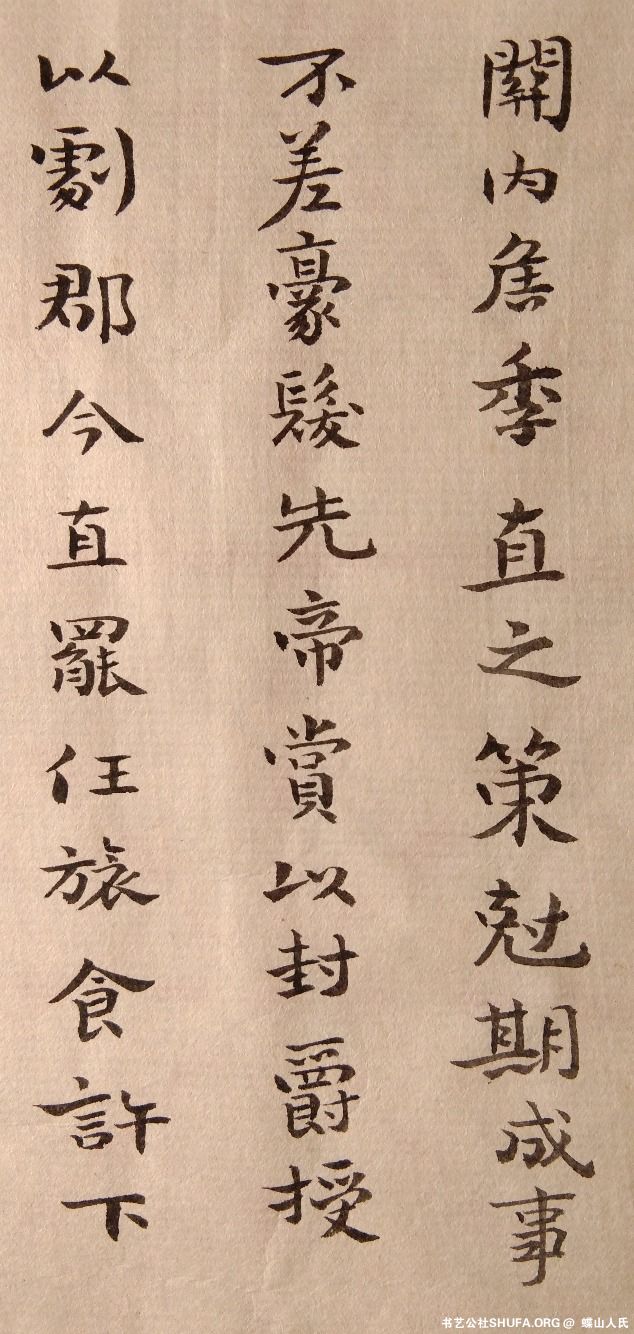 關內侯季直之策尅期成事
不差豪髮先帝賞以封爵授
以劇郡今直罷任旅食許下
书艺公社SHUFA.ORG @ 蝶山人氏